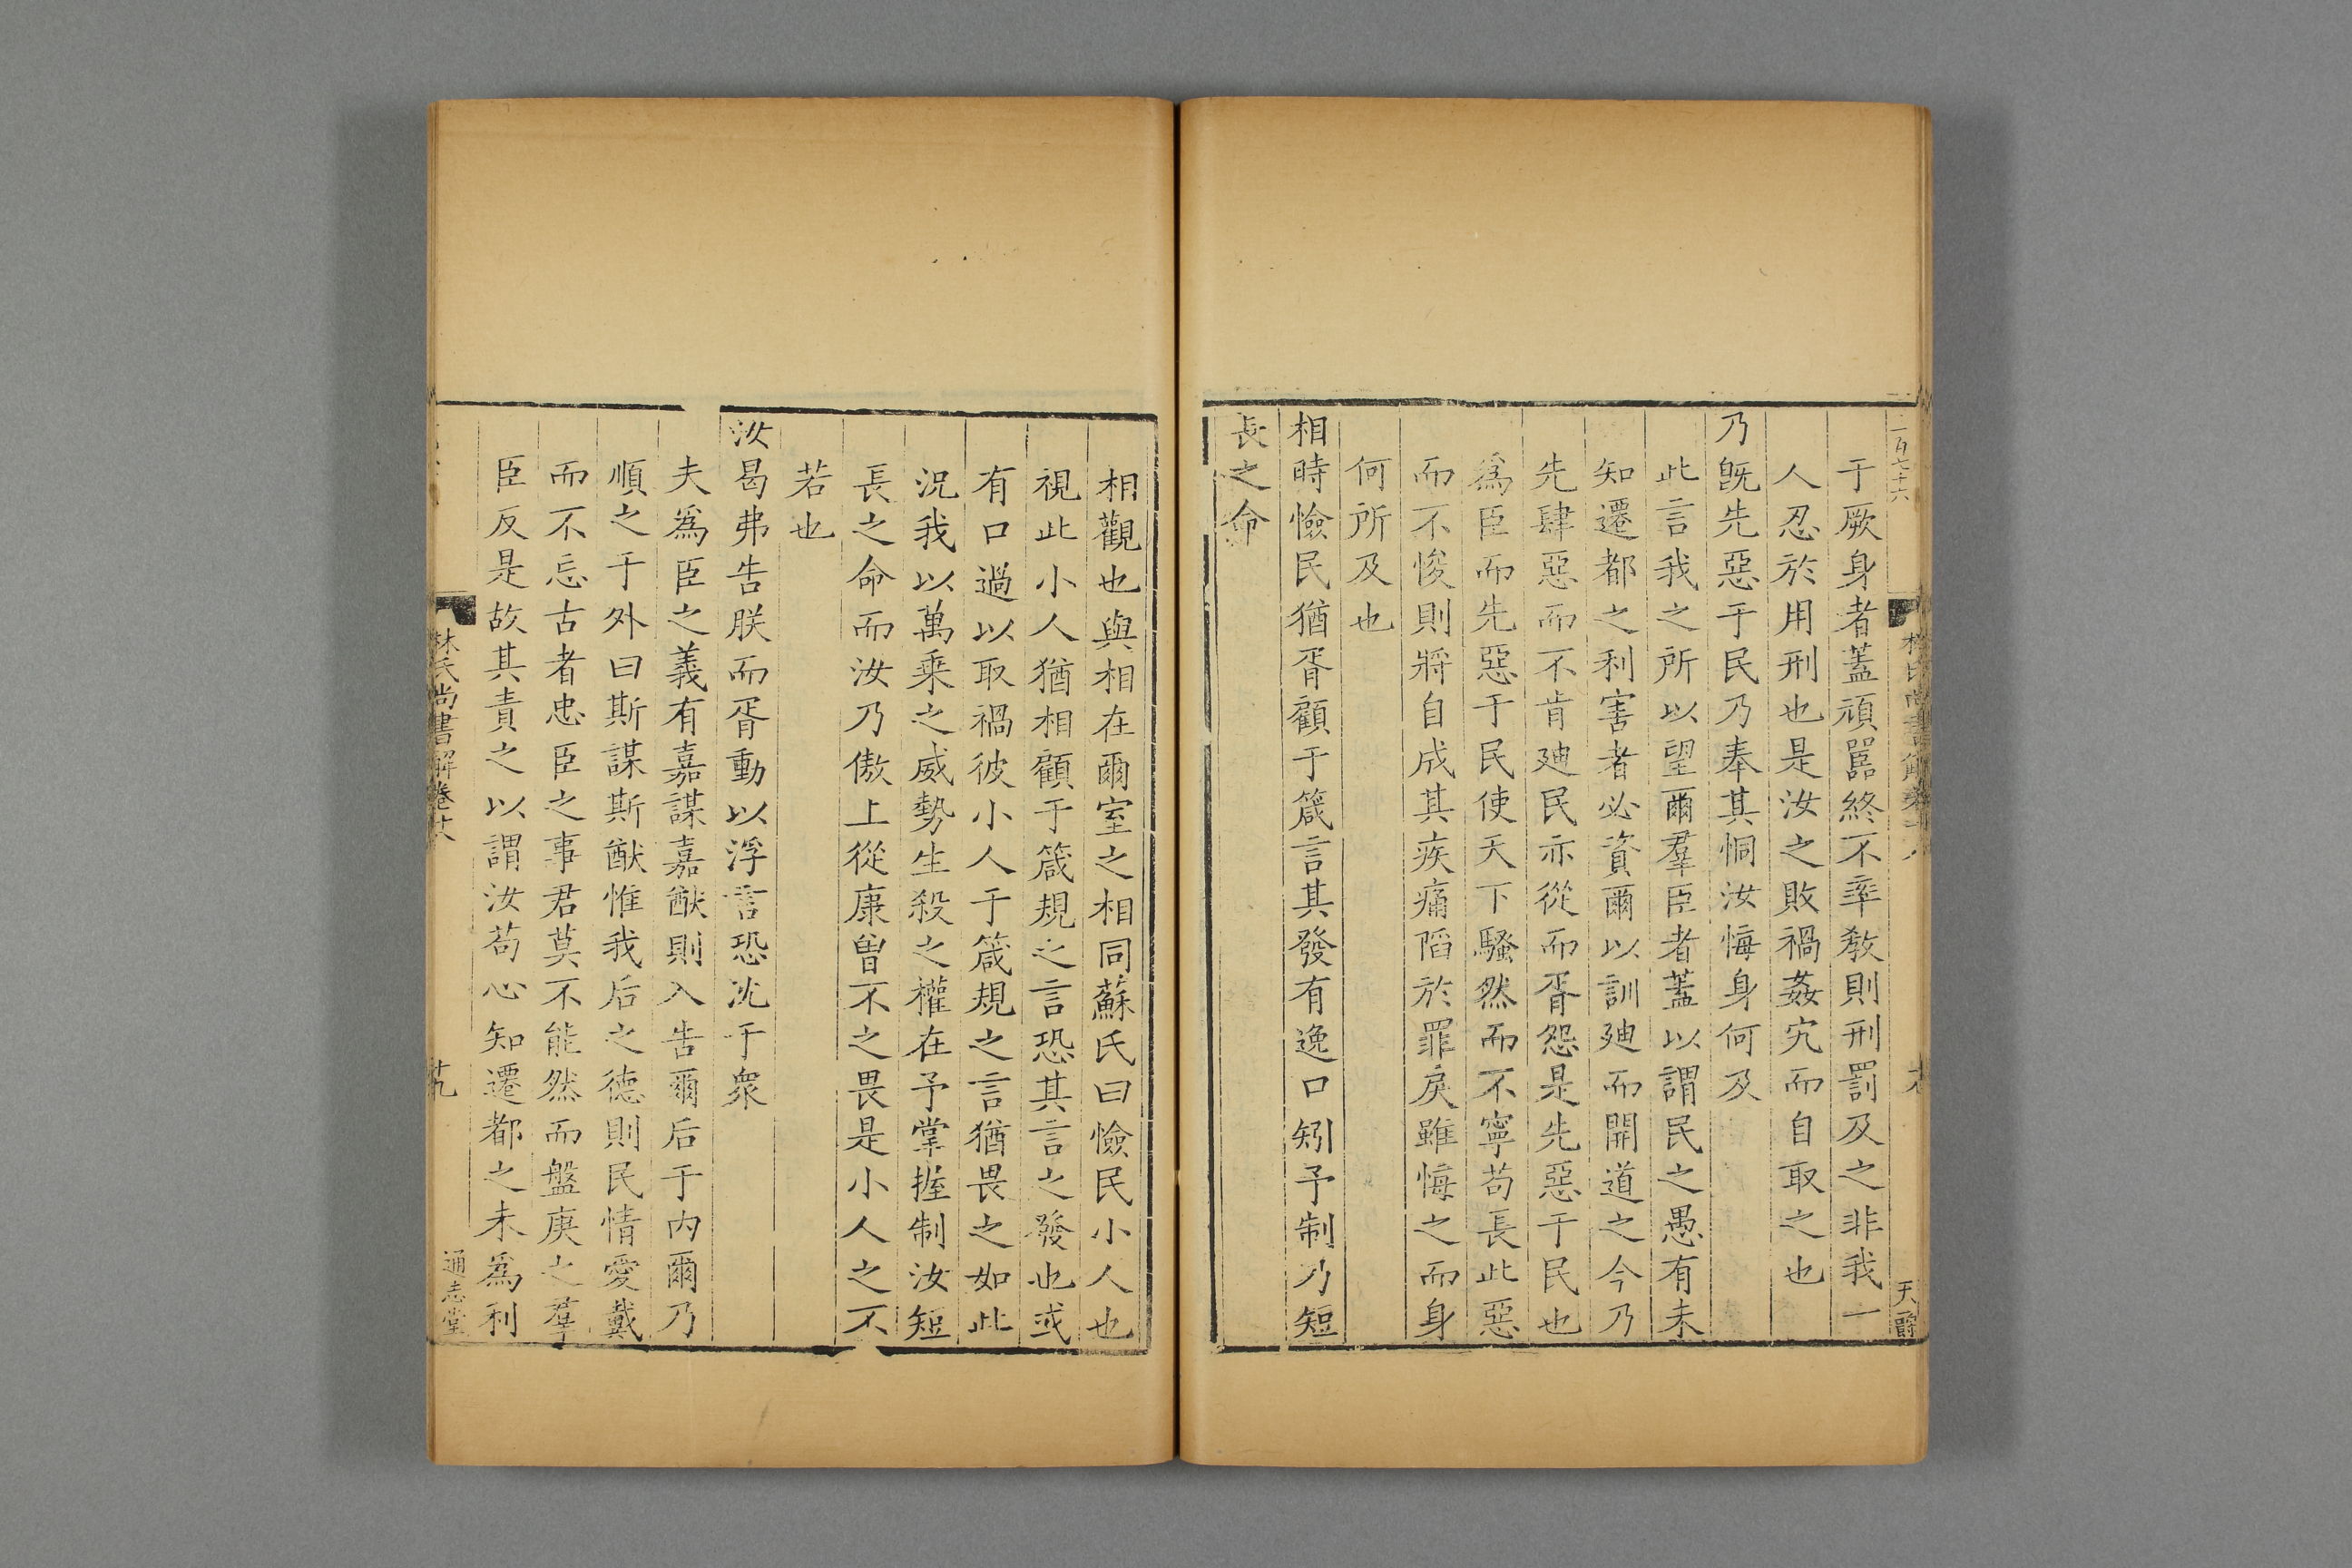 于厥身者蓋頑嚚終不率教則刑罰及之非我一
人忍於用刑也是汝之敗禍姦宄而自取之也
乃旣先惡于民乃奉其恫汝悔身何及
此言我之所以望爾羣臣者蓋以謂民之愚有未
知遷都之利害者必資爾以訓廸而開道之今乃
先肆惡而不肯廸民亦從而胥怨是先惡于民也
爲臣而先惡于民使天下騷然而不寧苟長此惡
而不悛則將自成其疾痛䧟於罪戾雖悔之而身
何所及也
相時憸民猶胥顧于箴言其發有逸口矧予制乃短
長之命
相觀也與相在爾室之相同蘇氏曰憸民小人也
視此小人猶相顧于箴規之言恐其言之發也或
有口過以取禍彼小人于箴規之言猶畏之如此
況我以萬乗之威勢生殺之權在予掌握制汝短
長之命而汝乃傲上從康曽不之畏是小人之不
若也
汝曷弗告朕而胥動以浮言恐沈于衆
夫爲臣之義有嘉謀嘉猷則入告爾后于内爾乃
順之于外曰斯謀斯猷惟我后之德則民情愛戴
而不忘古者忠臣之事君莫不能然而盤庚之羣
臣反是故其責之以謂汝苟心知遷都之未爲利
林氏尚書解卷
通志堂